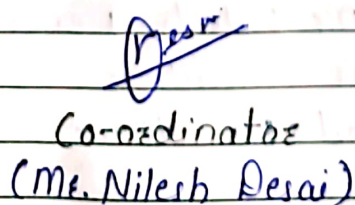 Co-ordinator
(Mr. Nilesh Desai)